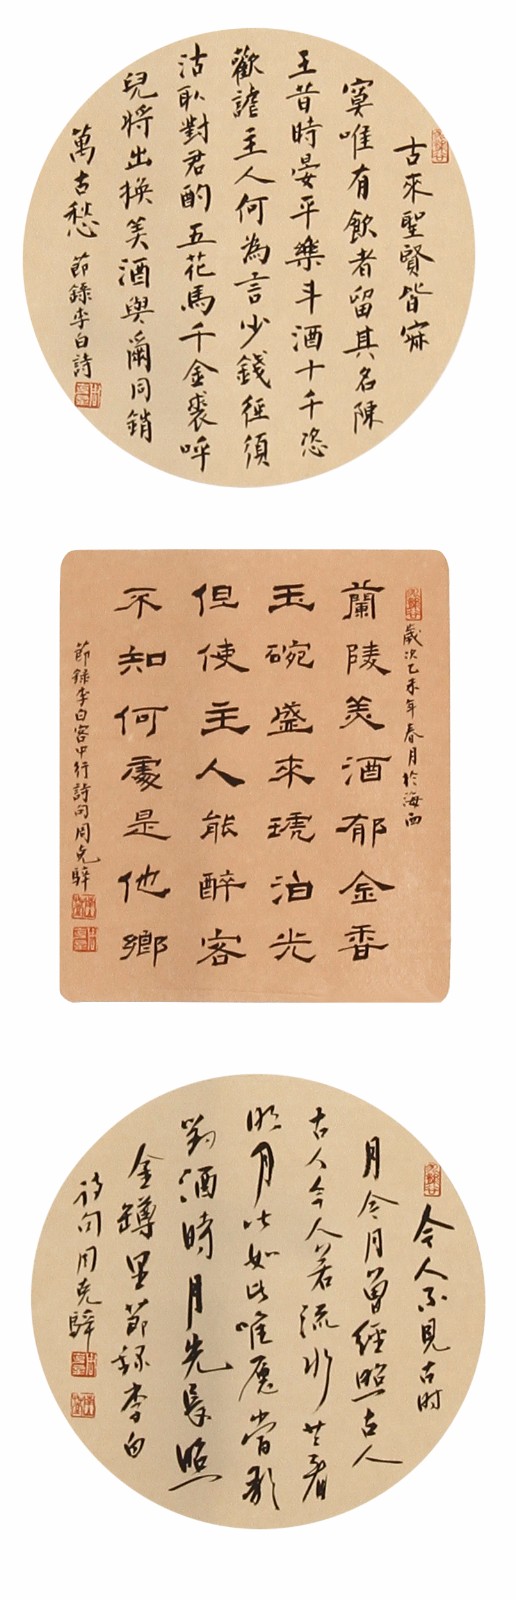 古來聖賢皆寂
寞唯有飲者留其名陳
王昔時宴平樂斗酒十千恣
歡謔主人何為言少錢徑須
沽取對君酌五花馬千金裘呼
兒將出換美酒與爾同銷
萬古愁 節錄李白詩
歲次乙未年春月於海西
蘭陵美酒郁金香
玉碗盛來琥珀光
但使主人能醉客
不知何處是他鄉
節錄李白客中行詩句周克騂
今人不見古时
月今月曾經照古人
古人今人若流水共看
明月皆如此唯愿當歌
對酒時月光長照
金罇里節録李白
诗句周克騂